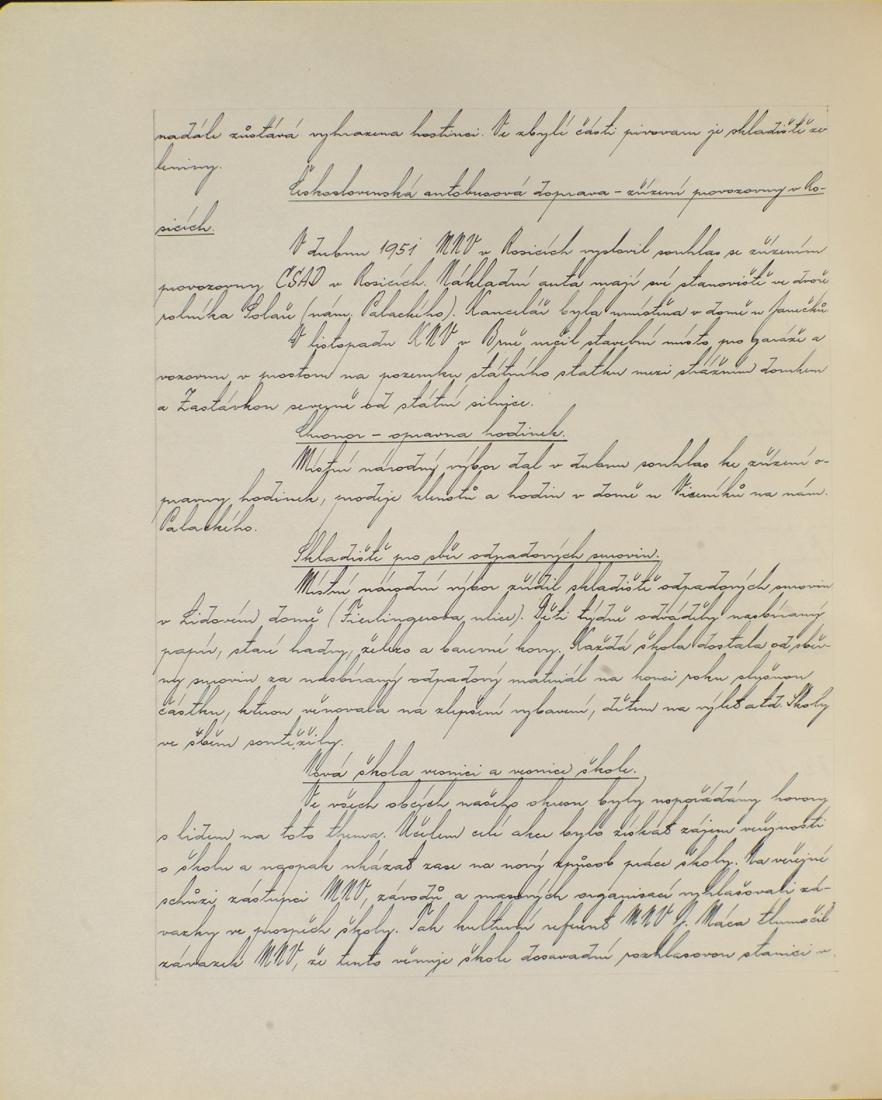 nadále zůstává vyhrazena hostinci. Ve zbylé části pivovaru je skladiště ze-
leniny.
Československá autobusová doprava – zřízení provozovny v Ro-
sicích.
V dubnu 1951 MNV v Rosicích vyslovil souhlas se zřízením
provozovny ČSAD v Rosicích. Nákladní auta mají své stanoviště ve dvoře
rolníka Soláře (nám. Palackého). Kancelář byla umístěna v domě u Janečků.
V listopadu KNV v Brně určil stavební místo pro garáže a
vozovnu v prostoru na pozemku státního statku mezi strážním domkem
a Zastávkou severně od státní silnice.
Chronor – opravna hodinek.
Místní národní výbor dal v dubnu souhlas ke zřízení o-
pravny hodinek, prodeje klenotů a hodin v domě u Viceníků na nám.
Palackého.
Skladiště pro sběr odpadových surovin.
Místní národní výbor zřídil skladiště odpadových surovin
v Lidovém domě (Fierlingerova ulice). Děti týdně odváděly nasbíraný
papír, staré hadry, železo a barevné kovy. Každá škola dostala od sběr-
ny surovin za nasbíraný odpadový materiál na konci roku slušnou
částku, kterou věnovala na zlepšení vybavení, dětem na výlet atd. Školy
ve sběru soutěžily.
Nová škola vesnici a vesnice škole.
Ve všech obcích našeho okresu byly uspořádány hovory
s lidem na toto thema. Účelem celé akce bylo získat zájem veřejnosti
o školu a naopak ukázat zase na nový způsob práce školy. Na veřejné
schůzi zástupci MNV, závodů a masových organisací vyhlašovali zá-
vazky ve prospěch školy. Tak kulturní referent MNV J. Máca tlumočil
závazek MNV, že tento věnuje škole dosavadní rozhlasovou stanici v